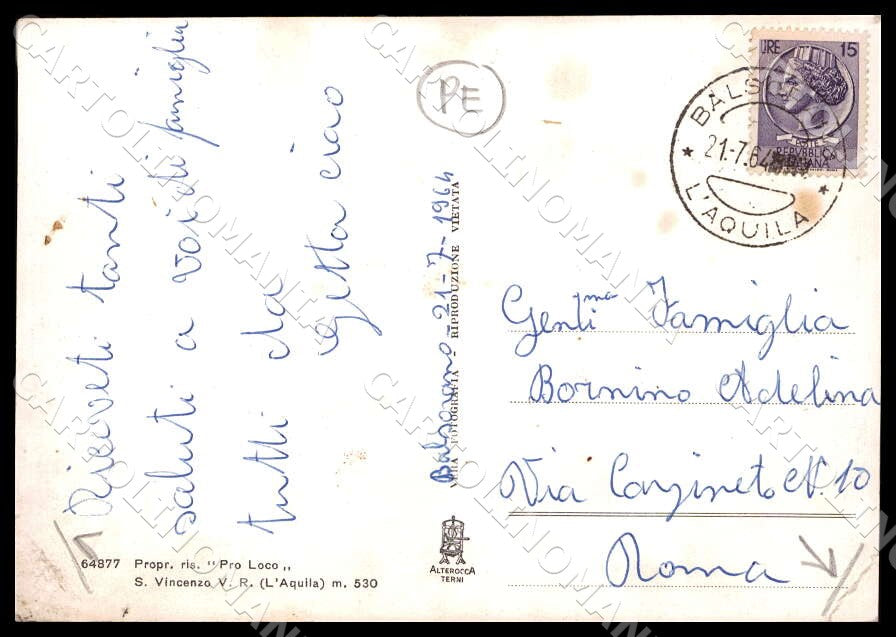 Riceveti tanti
saluti a voi di famiglia
tutti da
Getta ciao
Balsorano-21-7-1964
VERA FOTOGRAFIA - RIPRODUZIONE VIETATA
PE
LIRE 15
POSTE
REPVBBLICA
ITALIANA
21.-7.64
* L'AQUILA *
Gentima Famiglia
Bornino Adelina
Via N. 10
Roma
64877 Propr. ris. "Pro Loco„
S. Vincenzo V. R. (L'Aquila) m. 530
ALTEROCCA
TERNI
CARTOLINOMANIA